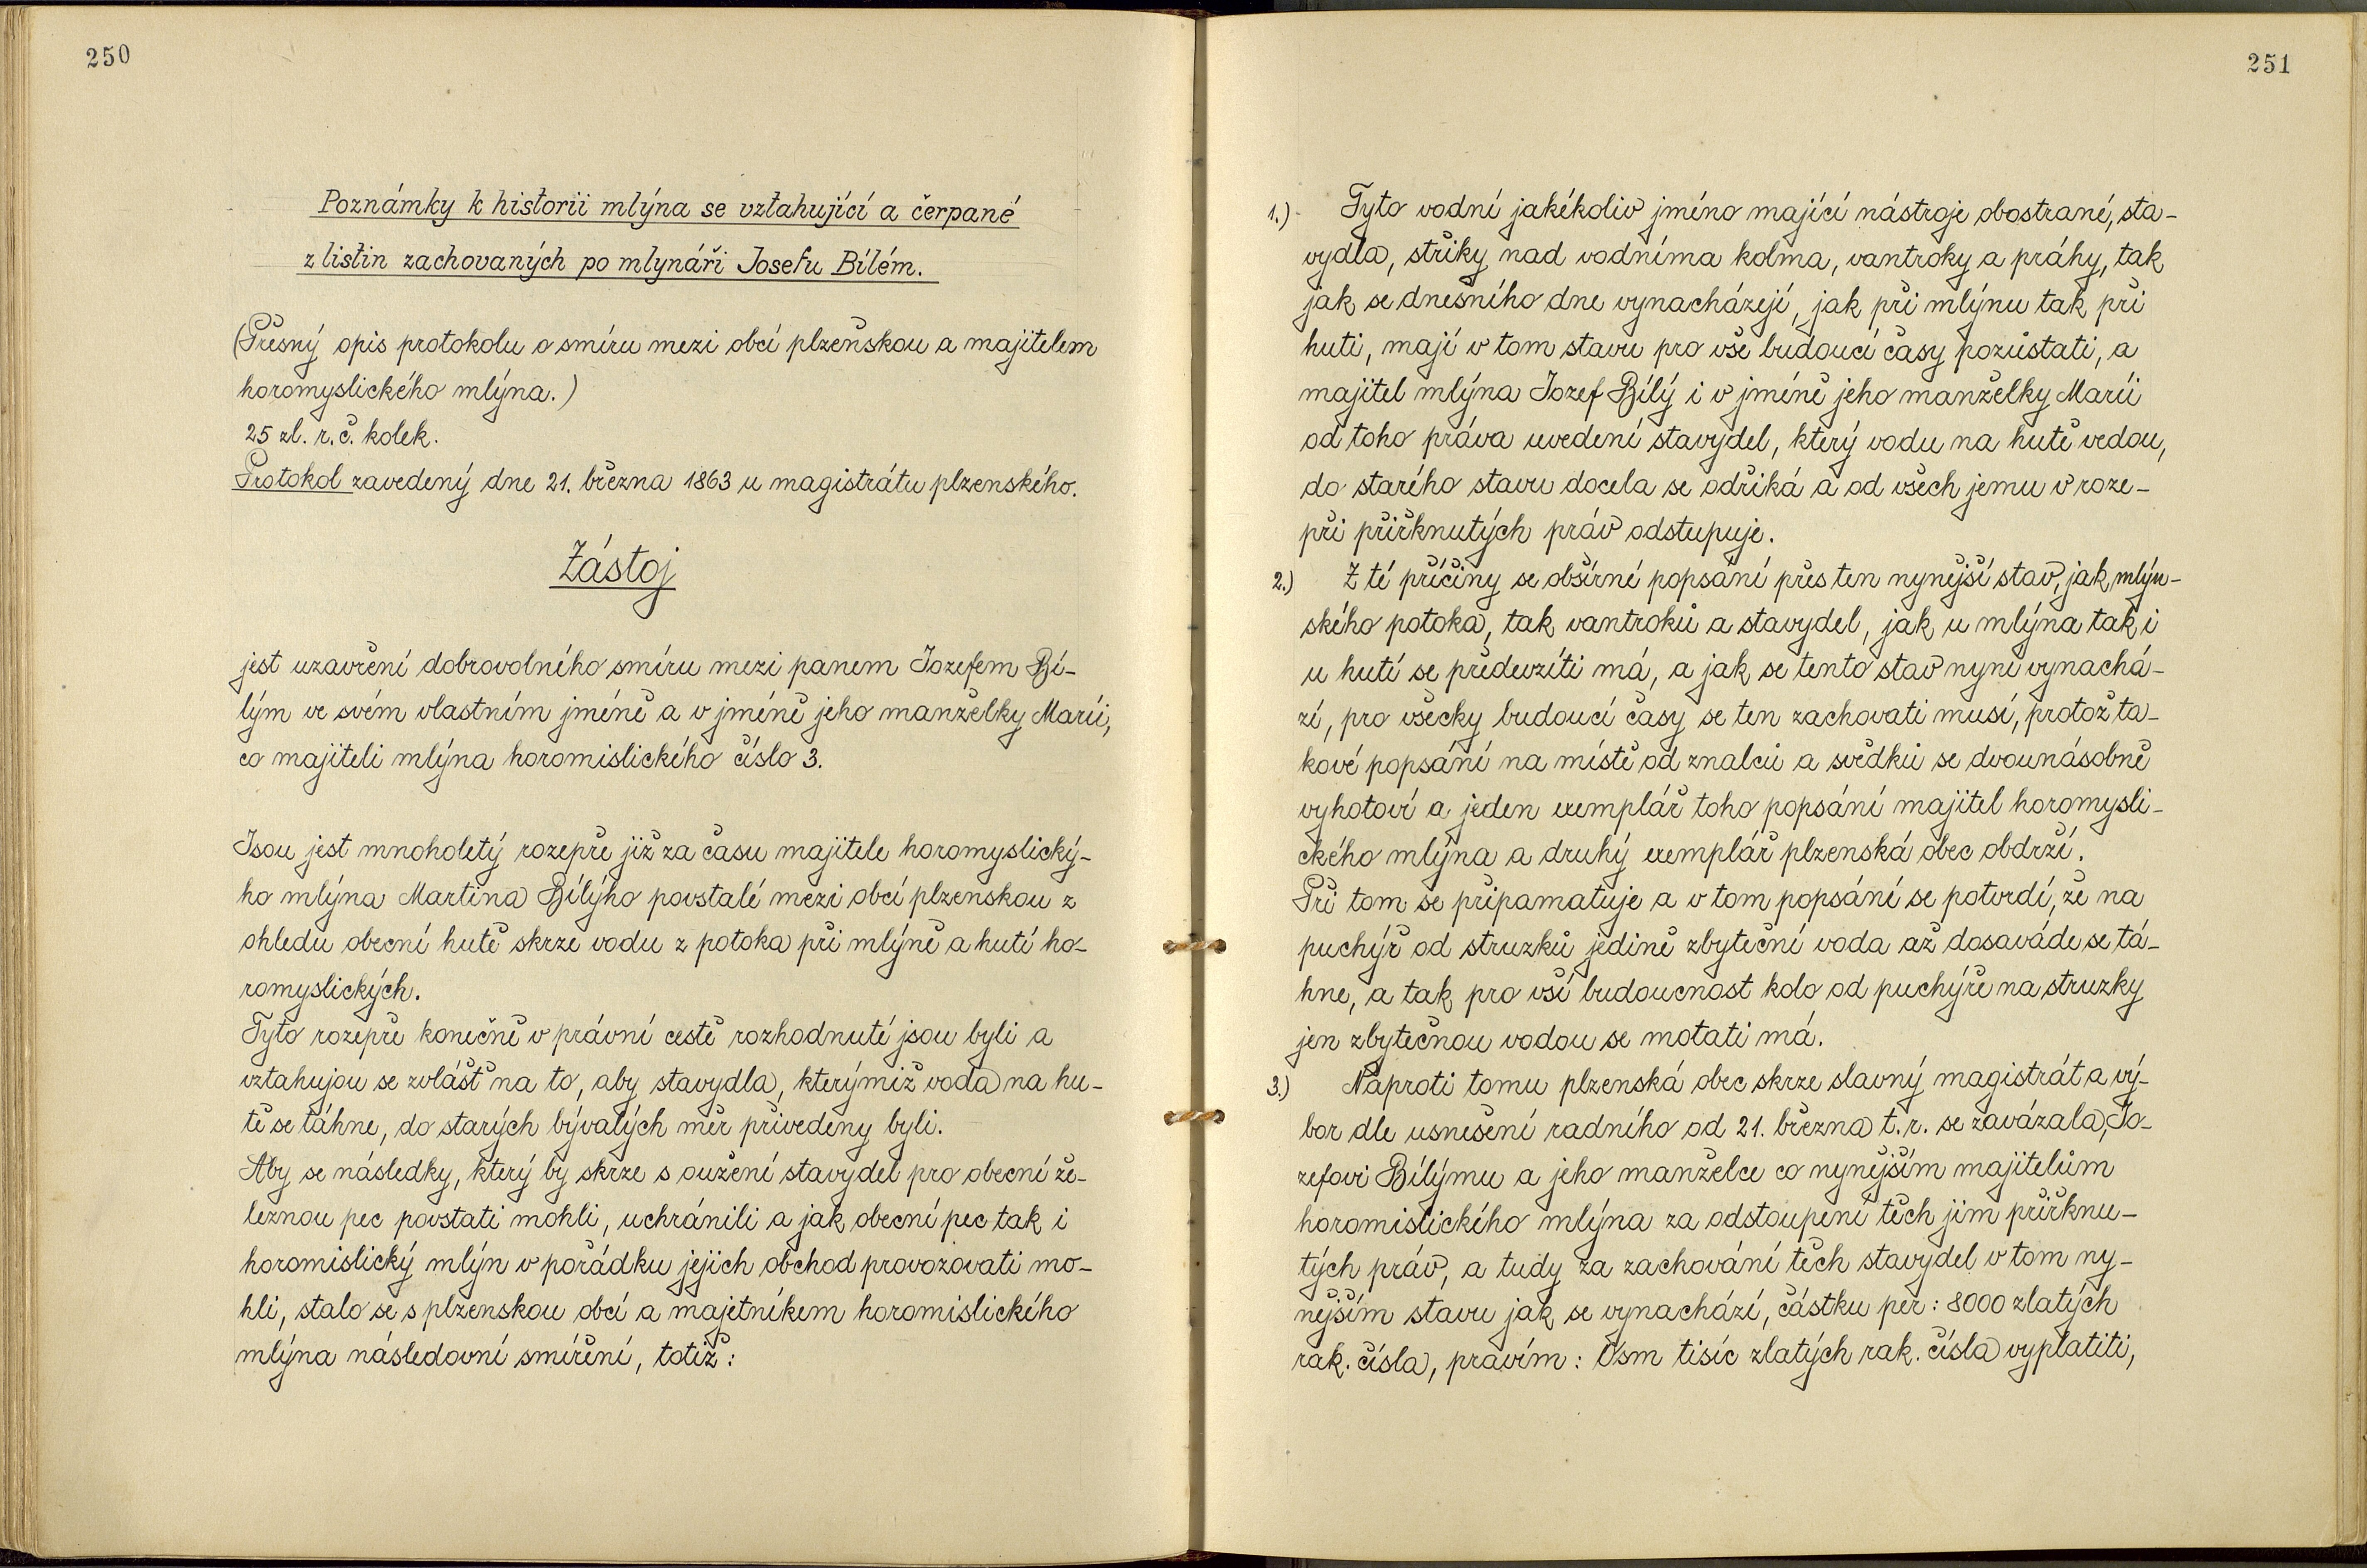 250
Poznámky k historii mlýna se vztahující a čerpané
z listin zachovaných po mlynáři Josefu Bílém.
(Přesný opis protokolu o smíru mezi obcí plzeňskou a majitelem
horomyslického mlýna.)
25 zl. r. č. kolek.
Protokol zavedený dne 21. března 1863 u magistrátu plzenského.
Zástoj
jest uzavření dobrovolného smíru mezi panem Jozefem Bí-
lým ve svém vlastním jméně a v jméně jeho manželky Marii,
co majiteli mlýna horomislického číslo 3.
Jsou jest mnoholetý rozepře již za času majitele horomyslický-
ho mlýna Martina Bílýho povstalé mezi obcí plzenskou z
ohledu obecní hutě skrze vodu z potoka při mlýně a hutí ho-
romyslických.
Tyto rozepře konečně v právní cestě rozhodnuté jsou byli a
vztahujou se zvlášť na to, aby stavydla, kterýmiž voda na hu-
tě se táhne, do starých bývalých měr přivedeny byli.
Aby se následky, který by skrze s oužení stavydel pro obecní že-
leznou pec povstati mohli, uchránili a jak obecní pec tak i
horomislický mlýn v pořádku jejich obchod provozovati mo-
hli, stalo se s plzenskou obcí a majetníkem horomislického
mlýna následovní smíření, totiž:
251
1.) Tyto vodní jakékoliv jméno mající nástroje obostrané, sta-
vydla, střiky nad vodníma kolma, vantroky a práhy, tak
jak se dnešního dne vynacházejí, jak při mlýnu tak při
huti, mají v tom stavu pro vše budoucí časy pozůstati, a
majitel mlýna Jozef Bílý i v jméně jeho manželky Marii
od toho práva uvedení stavydel, který vodu na hutě vedou,
do starého stavu docela se odříká a od všech jemu v roze-
při přiřknutých práv odstupuje.
2.) Z té příčiny se obšírné popsání přes ten nynější stav, jak mlýn-
ského potoka, tak vantroků a stavydel, jak u mlýna tak i
u hutí se předevzíti má, a jak se tento stav nyní vynachá-
zí, pro všecky budoucí časy se ten zachovati musí, protož ta-
kové popsání na místě od znalců a svědků se dvounásobně
vyhotoví a jeden exemplář toho popsání majitel horomysli-
ckého mlýna a druhý exemplář plzenská obec obdrží.
Při tom se připamatuje a v tom popsání se potvrdí, že na
puchýř od struzků jedině zbyteční voda až dosaváde se tá-
hne, a tak pro vší budoucnost kolo od puchýře na struzky
jen zbytečnou vodou se motati má.
3.) Naproti tomu plzenská obec skrze slavný magistrát a vý-
bor dle usnešení radního od 21. března t. r. se zavázala, Jo-
zefovi Bílýmu a jeho manželce co nynějším majitelům
horomislického mlýna za odstoupení těch jim přiřknu-
tých práv, a tudy za zachování těch stavydel v tom ny-
nějším stavu jak se vynachází, částku per: 8000 zlatých
rak. čísla, pravím: Osm tisíc zlatých rak. čísla vyplatiti,